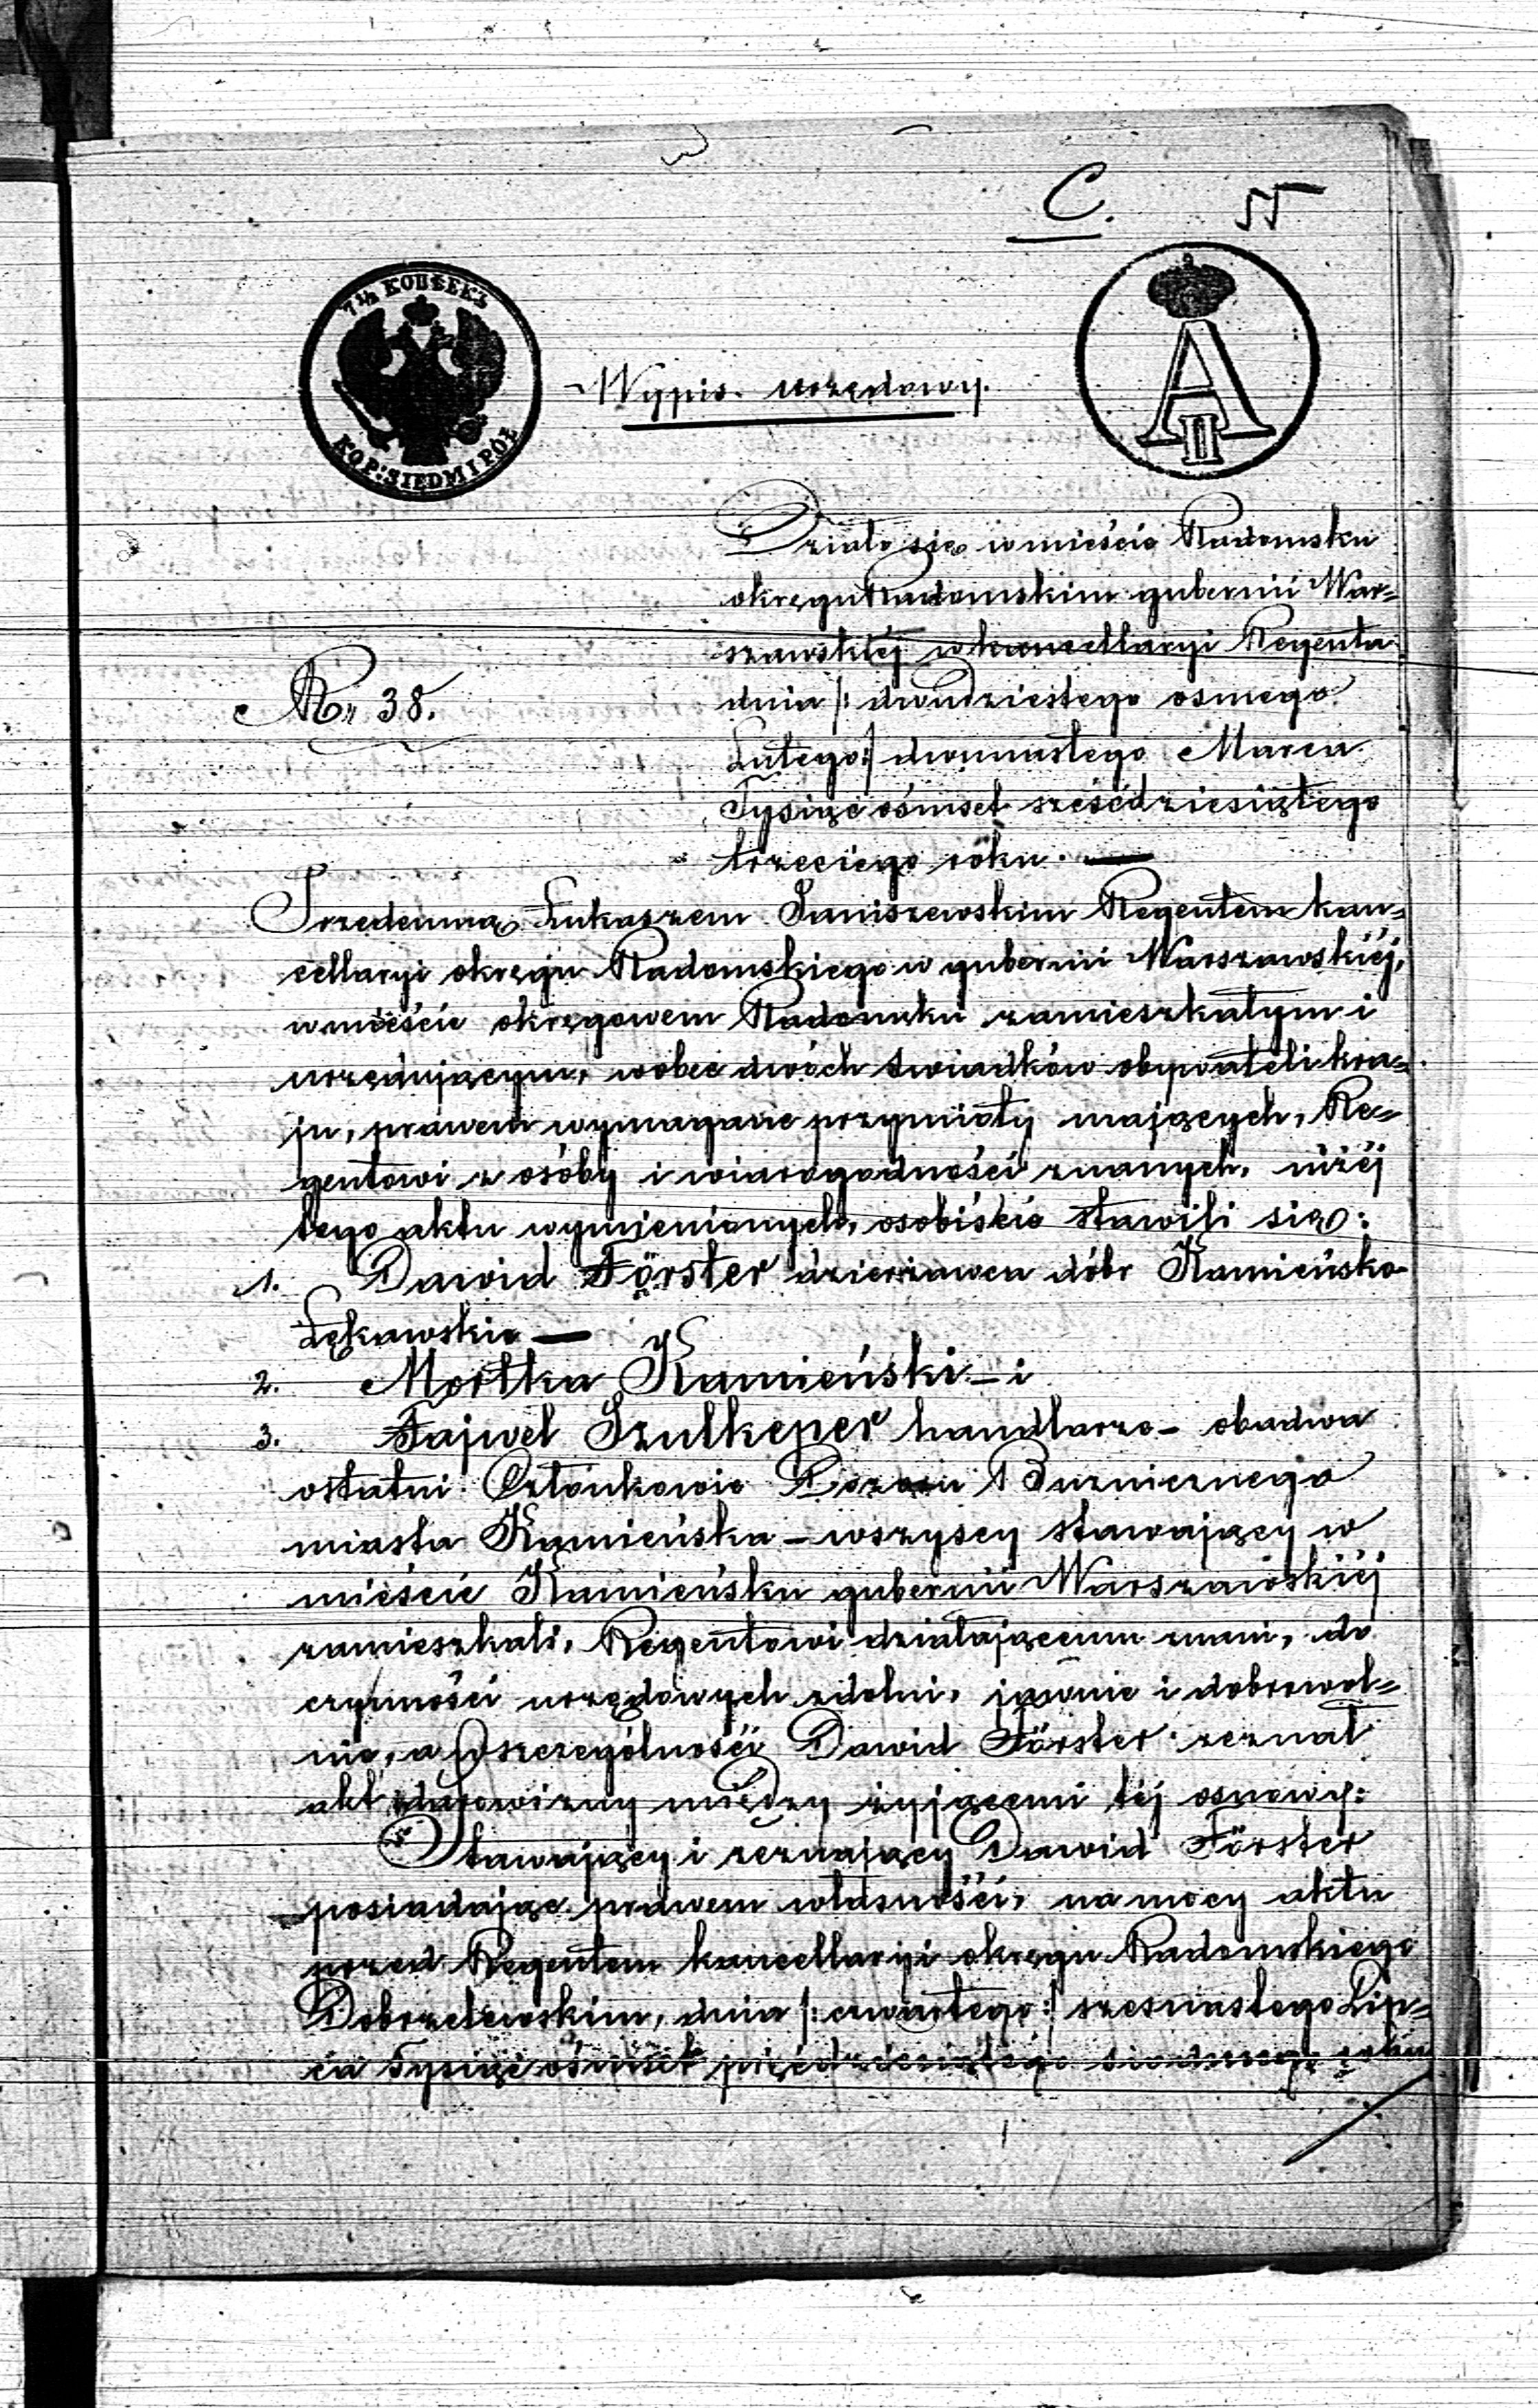 C. 55
7 1/2 КОПѢЕКЪ
KOP: SIEDM I PÓŁ
A II
Wypis urzędowy.
Działo się w mieście Radomsku
okręgu Radomskim gubernii War=
szawskiéj w kancellaryi Regenta
dnia /: dwudziestego osmego
Lutego :/ dwunastego Marca
Tysiąc ośmset sześćdziesiątego
trzeciego roku. —
Nr. 38.
Przedemną Łukaszem Janiszewskim Regentem kan=
cellaryi okręgu Radomskiego w gubernii Warszawskiéj,
w mieście okręgowem Radomsku zamieszkałym i
urzędującym, wobec dwóch świadków obywateli kra=
ju, prawem wymagane przymioty mających, Re=
gentowi z osoby i wiarogodności znanych, niżéj
tego aktu wymienionych, osobiście stawili się:
1. Dawid Förster dzierżawca dóbr Kamieńsko
Łękawskie —
2. Mortka Kamieński – i
3. Fajwel Szulkeper handlarze – obadwa
ostatni Członkowie Dozoru Bużnicznego
miasta Kamieńska – wszyscy stawający w
mieście Kamieńsku gubernii Warszawskiéj
zamieszkali, Regentowi działającemu znani, do
czynności urzędowych zdolni, jawnie i dobrowol=
nie, a w szczególności Dawid Förster zeznał
akt darowizny między żyjącemi téj osnowy:
Stawający i zeznający Dawid Förster
posiadając prawem własności, na mocy aktu
przed Regentem kancellaryi okręgu Radomskiego
Dobrzelewskim, dnia /: czwartego :/ szesnastego Lip=
ca Tysiąc ośmset pięćdziesiątego siódmego roku